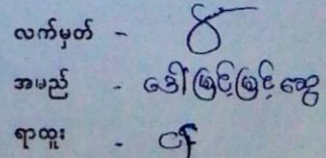 လက်မှတ် -
အမည် - ဒေါ်မြင့်မြင့်ဆွေ
ရာထူး -